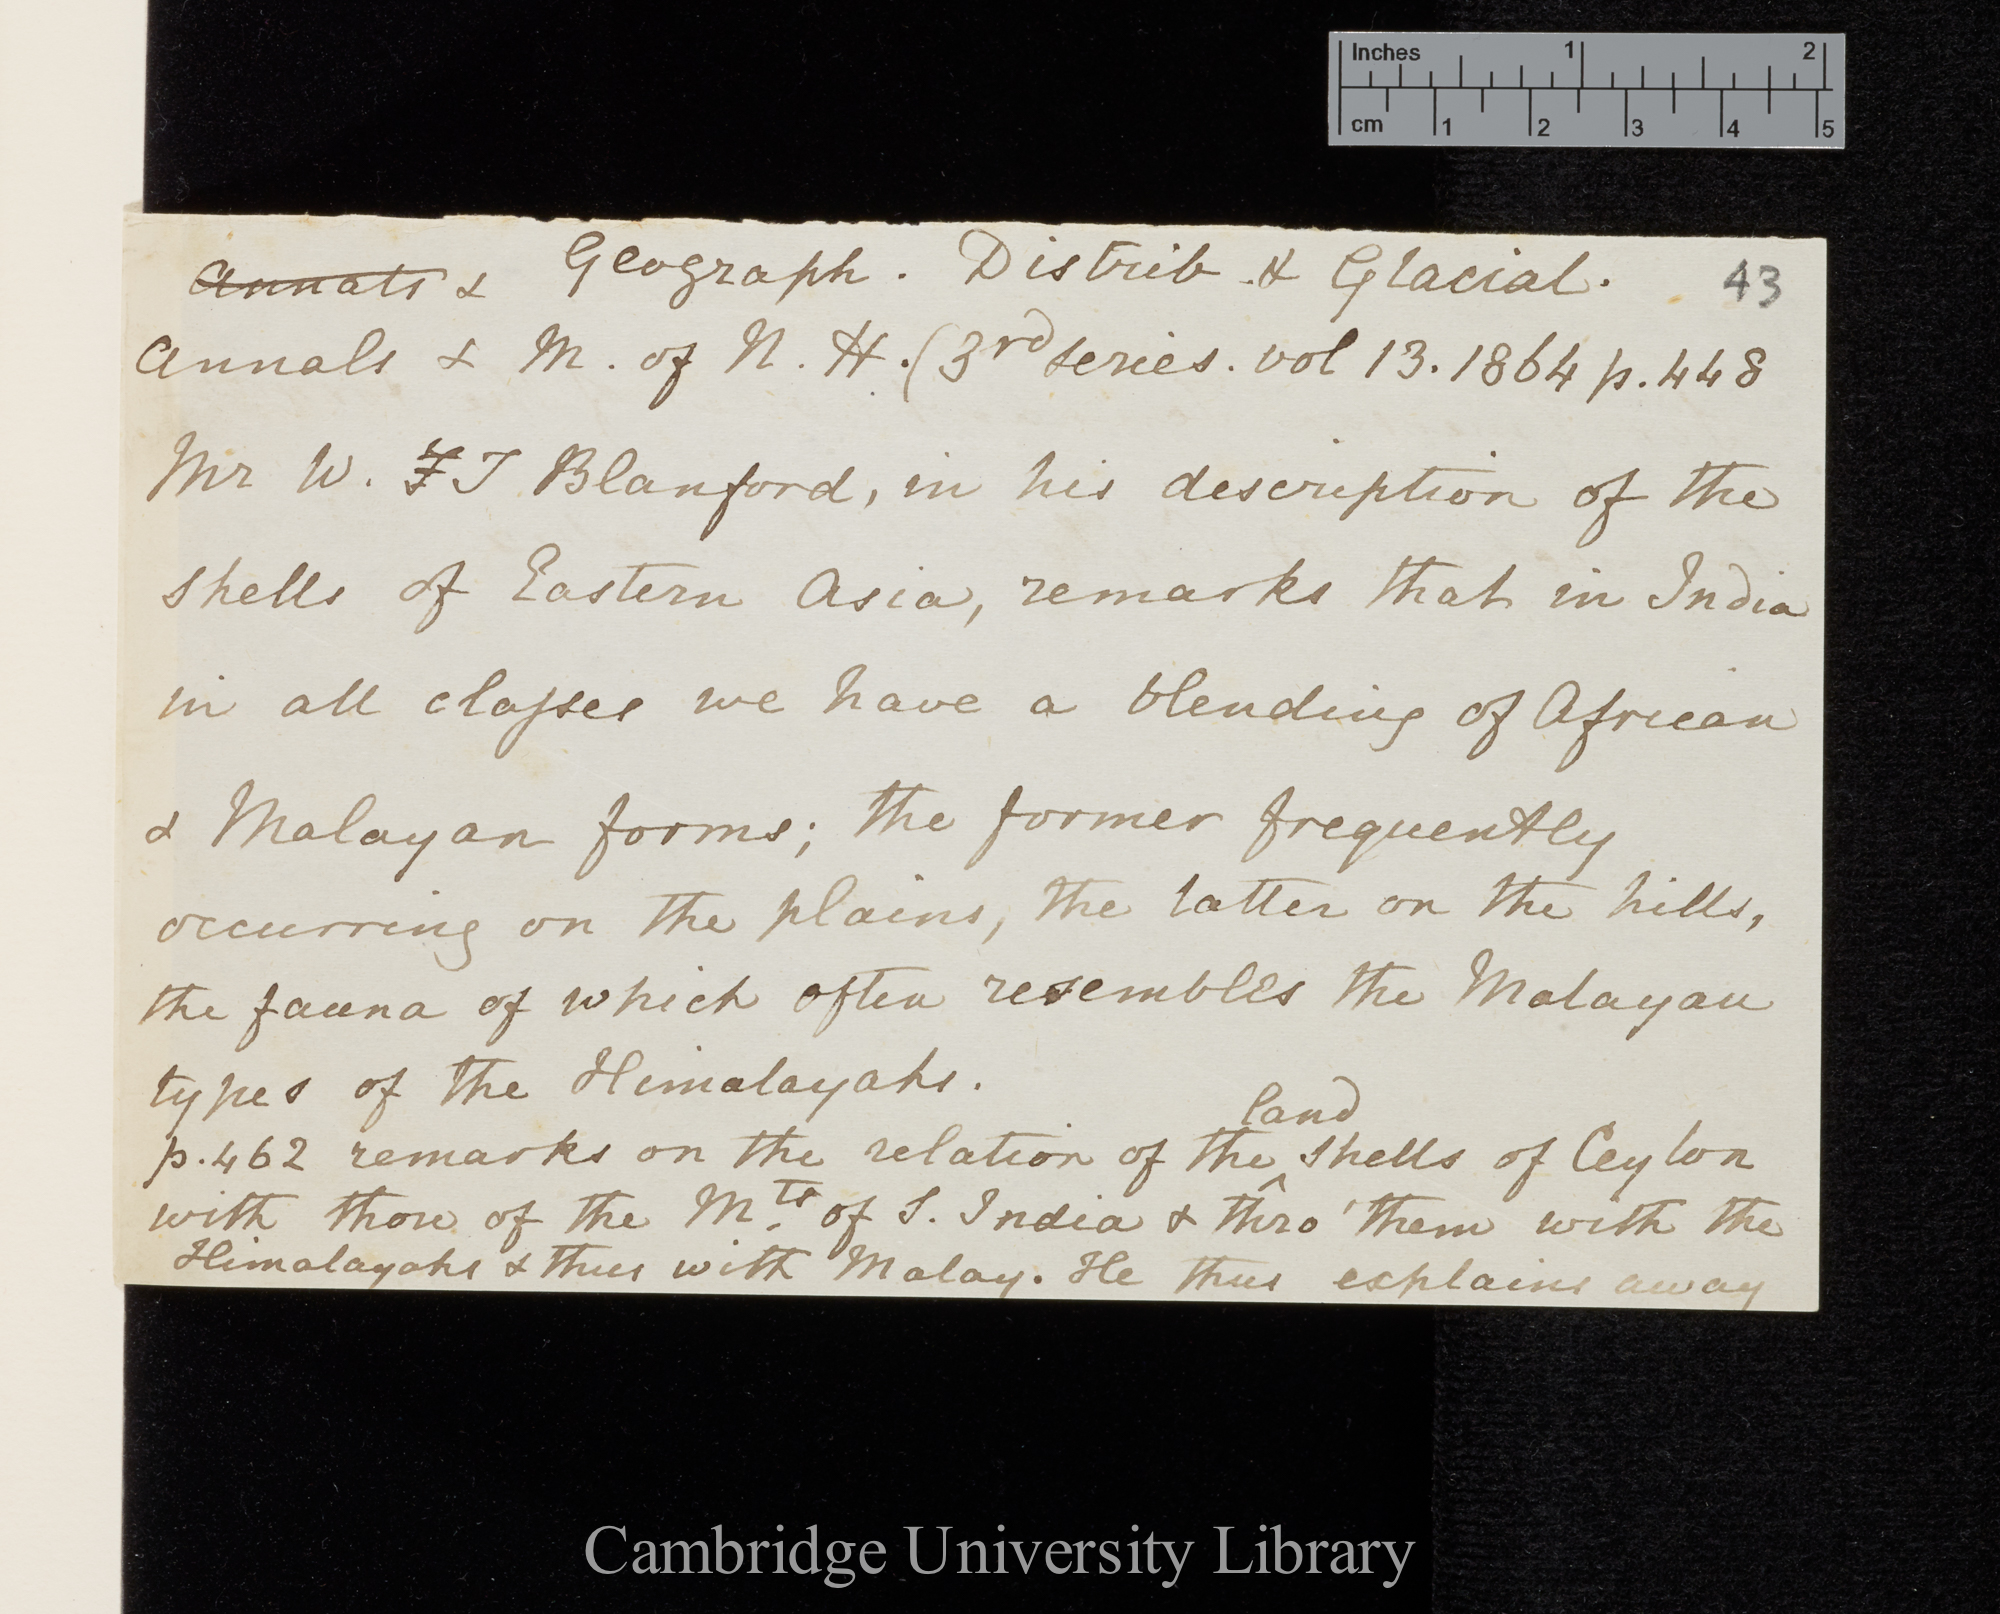 Inches 1 2
cm 1 2 3 4 5
Annals & Geograph. Distrib. & Glacial. 43
Annals & M. of N. H. (3rd series. vol 13. 1864 p. 448
Mr W. F T Blanford, in his description of the
shells of Eastern Asia, remarks that in India
in all classes we have a blending of African
& Malayan forms; the former frequently
occurring on the plains, the latter on the hills,
the fauna of which often resembles the Malayan
types of the Himalayahs.
land
p. 462 remarks on the relation of the ^ shells of Ceylon
with those of the Mts. of S. India & thro' them with the
Himalayahs & thus with Malay. He thus explains away
Cambridge University Library